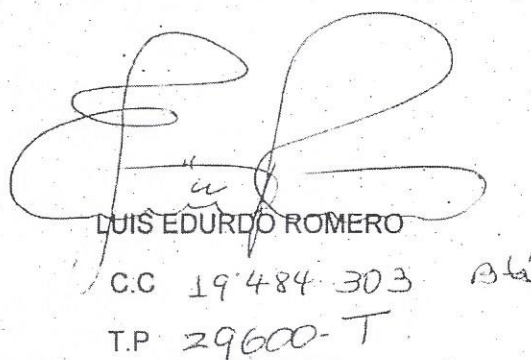 LUIS EDURDO ROMERO
C.C 19'484.303 Btá
T.P 29600-T